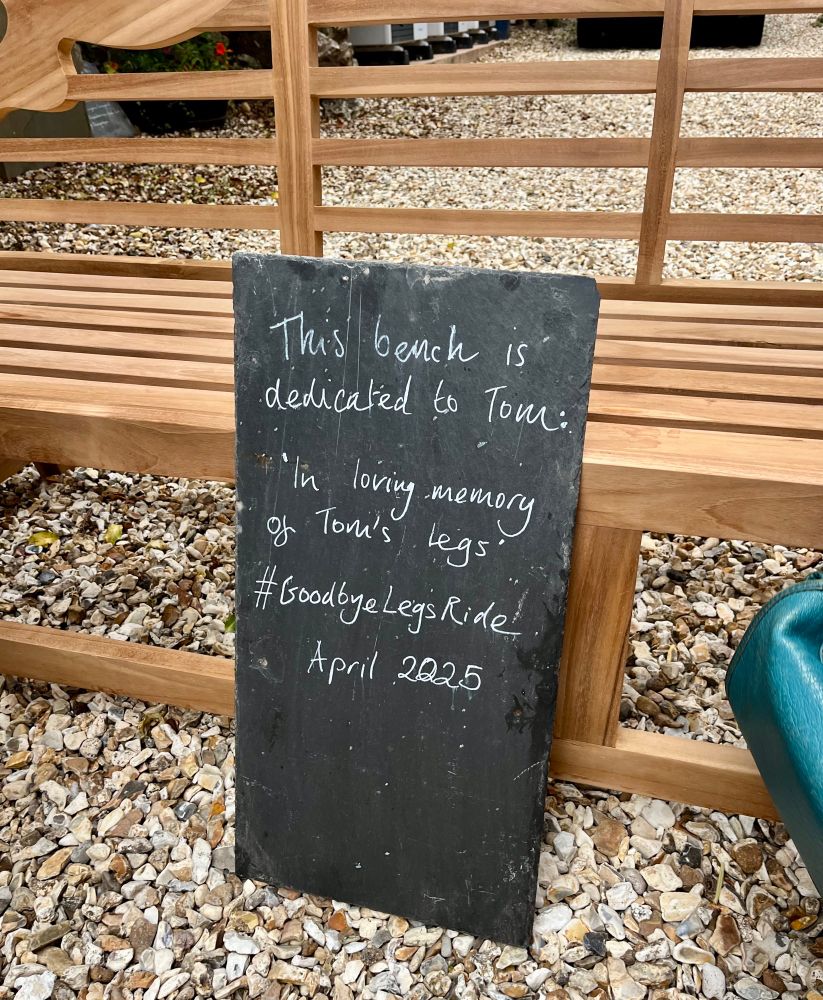 This bench is
dedicated to Tom:
'In loving memory
of Tom's legs'
#GoodbyeLegsRide
April 2025